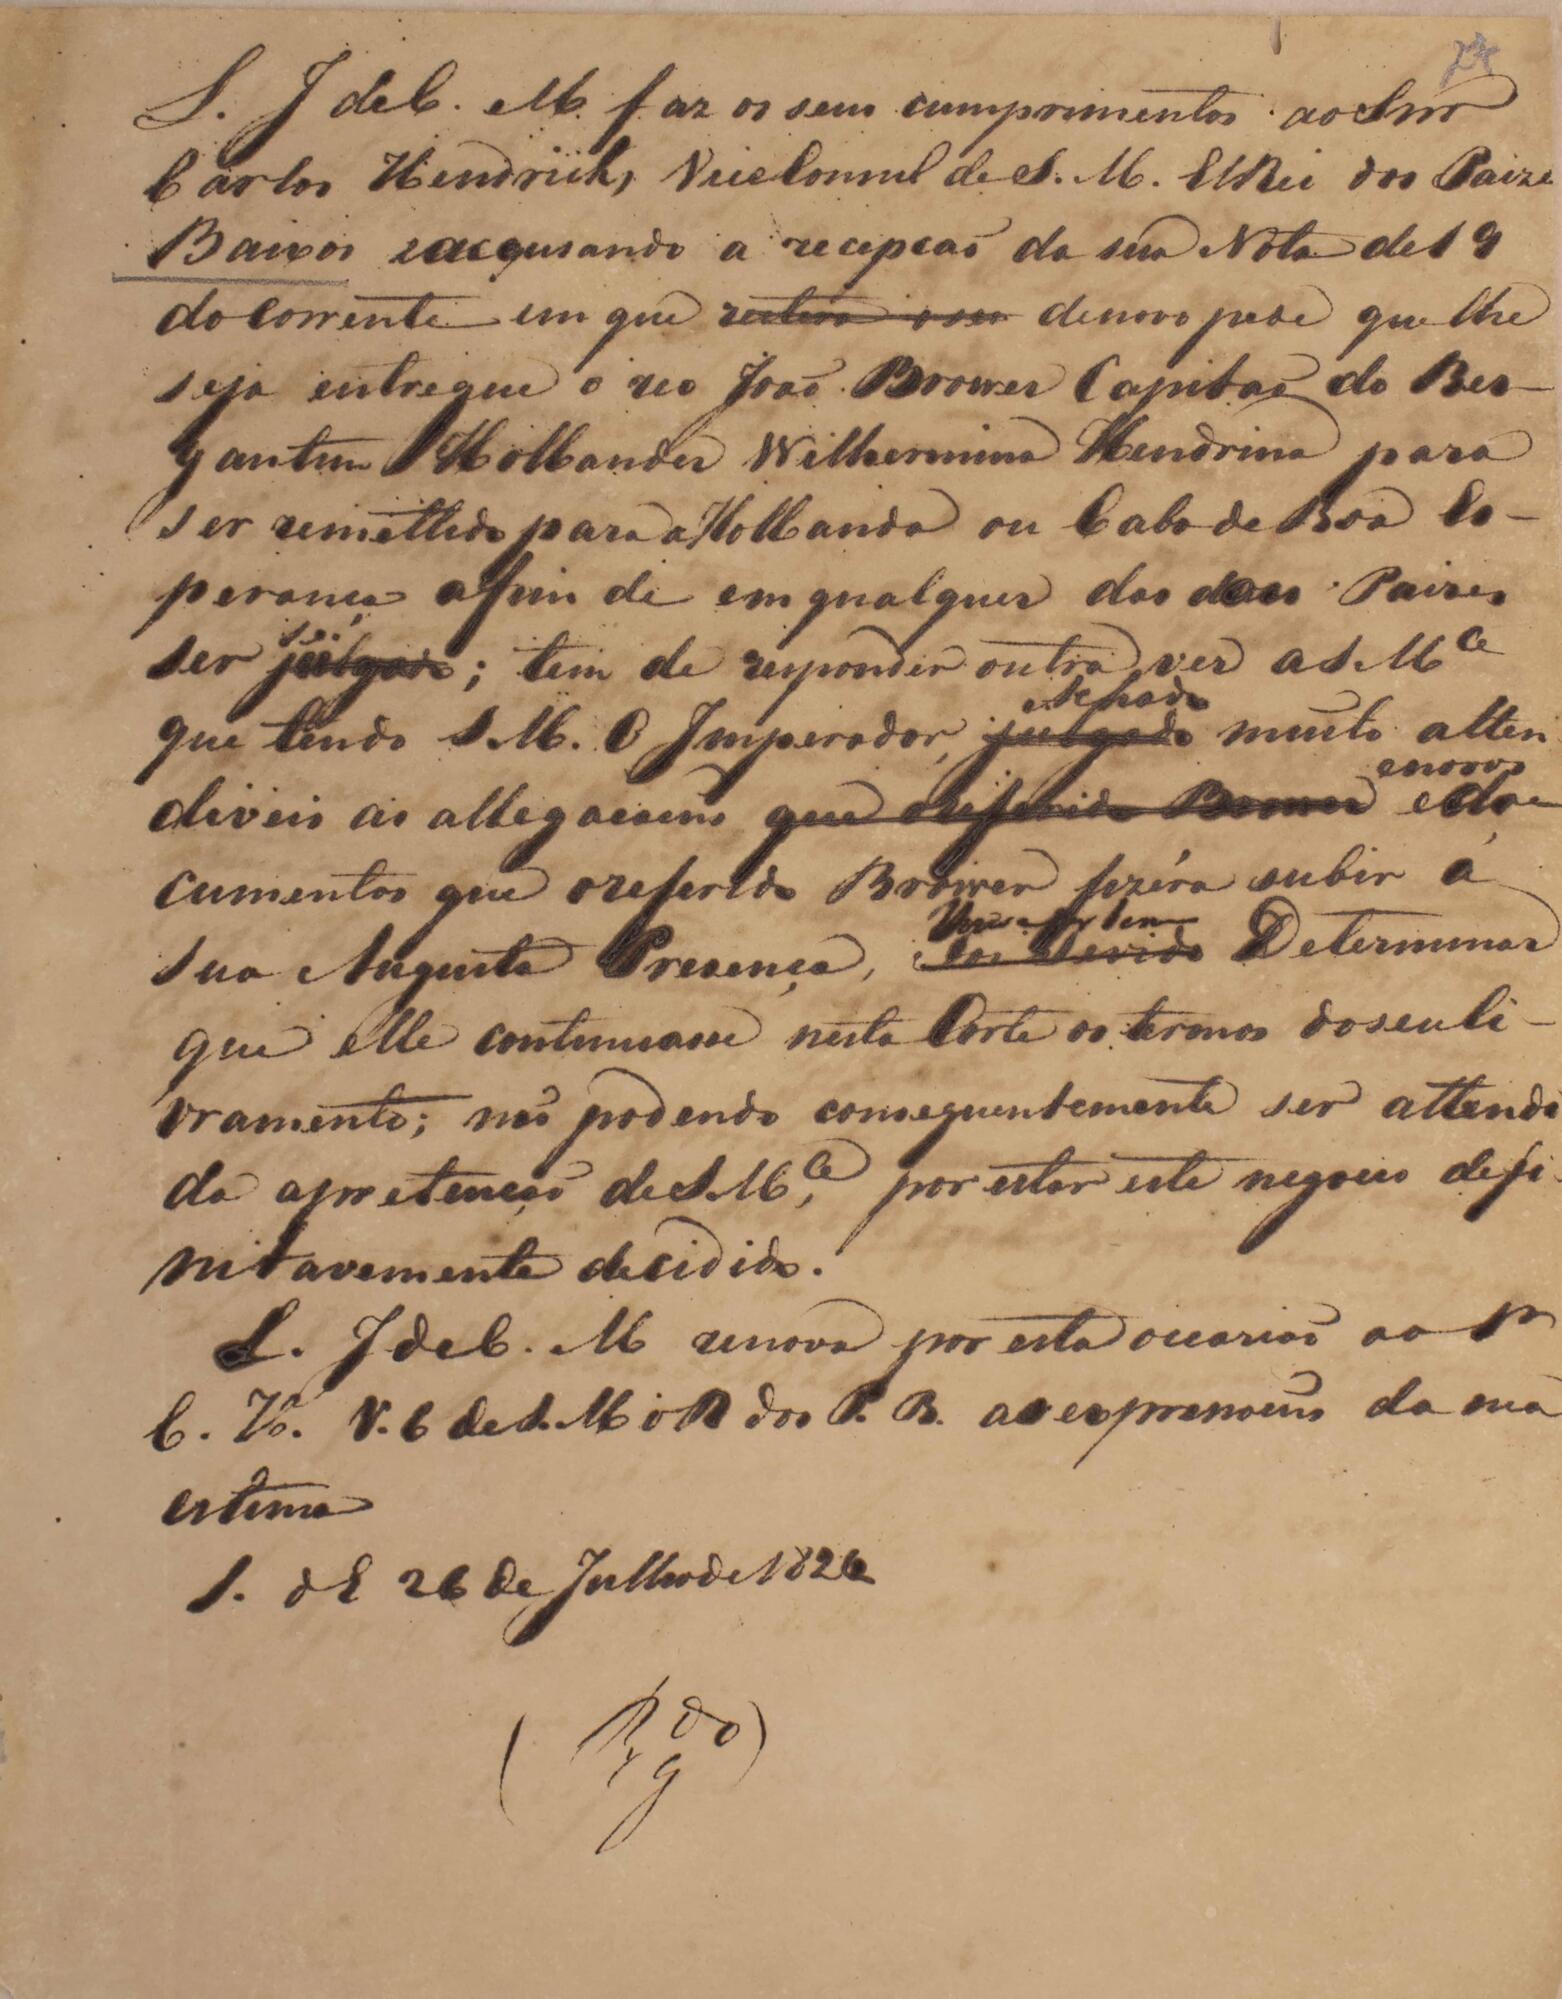 L. J de C. M. faz os seus cumprimentos ao Snr
Carlos Hendricks, Vice Consul de S. M. ElRei dos Paizes
Baixos e accusando a recepcaõ da sua Nota de 19
do corrente em que reitera o seo denovo pede que lhe
seja entregue o reo Joaõ Brower Capitaõ do Ber-
gantim Hollandes Wilhermina Hendrina para
ser remettido para a Hollanda ou Cabo de Boa Es-
perança afim de em qualquer dos dous Paizes
ser julgado; tem de responder outra vez a S. Mce
que tendo S. M. O Imperador, julgado achado muito atten
diveis as allegacoens que o referido Brower e novos e do-
cumentos que o referido Brower fizéra subir á
sua Augusta Presença, Houve por bem Determinar
que elle continuasse nesta Corte os termos do seu li-
vramento; naõ podendo consequentemente ser attendi
da a pretençaõ de S. Mce, por estar este negocio defi-
nitavemente decidido.
L. J de C. M renova por esta occasiaõ ao Sr
C. H. V. C de S. M o R dos P. B. as expressoens da sua
estima
S. d E 26 de Julho de 1826